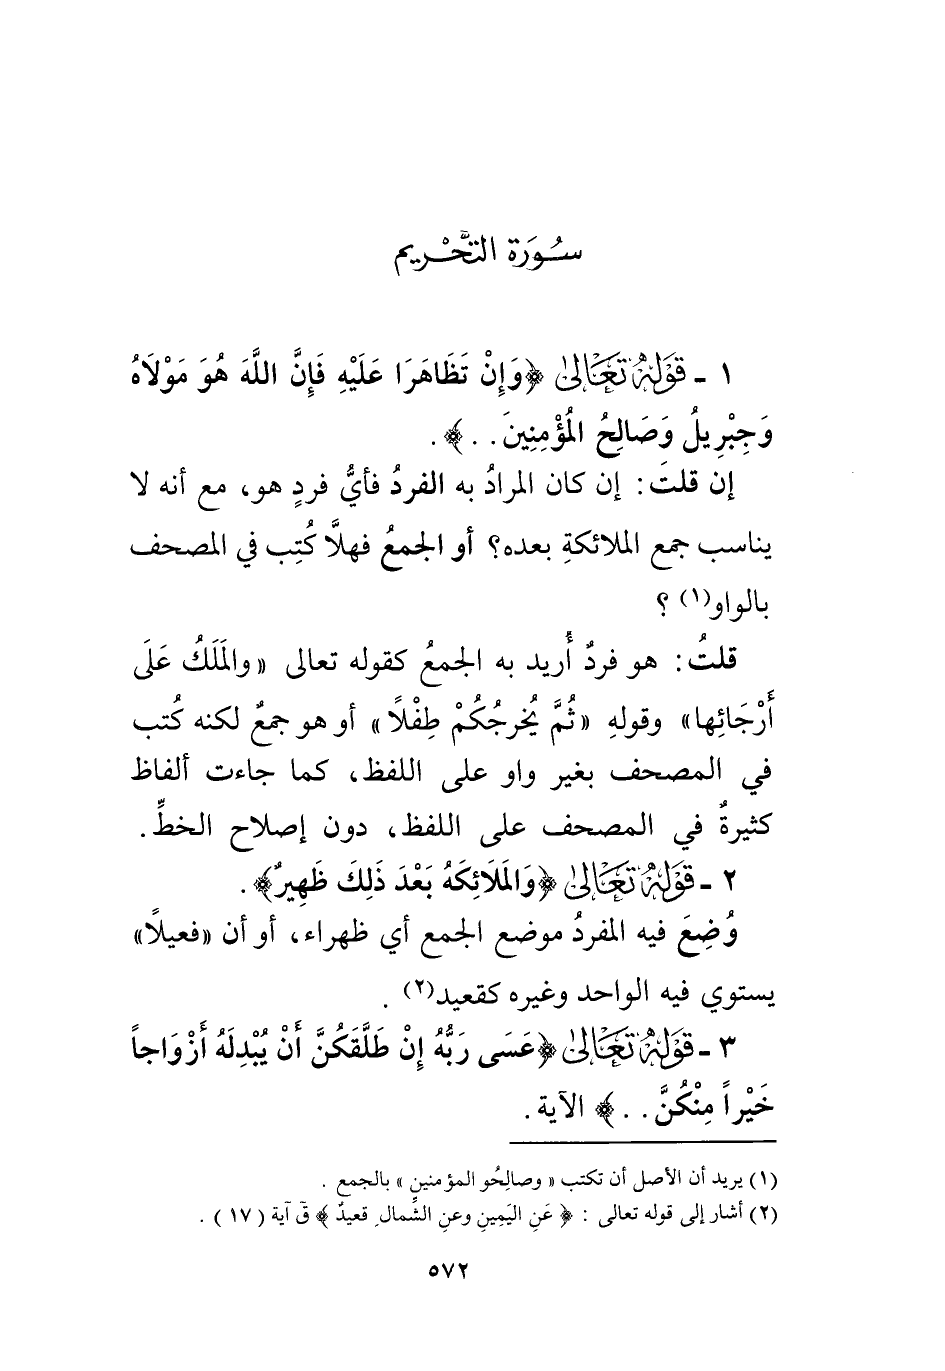 سُورَة التَّحْريم
١ ـ قَوْلُهُ تَعَالىٰ ﴿وَإِنْ تَظَاهَرَا عَلَيْهِ فَإِنَّ اللَّهَ هُوَ مَوْلَاهُ
وَجِبْرِيلُ وَصَالِحُ المُؤْمِنِينَ . . ﴾ .
إن قلتَ : إن كان المرادُ به الفردُ فأيُّ فردٍ هو، مع أنه لا
يناسب جمع الملائكةِ بعده؟ أو الجمعُ فهلَّا كُتِب في المصحف
بالواو(١) ؟
قلتُ : هو فردٌ أُريد به الجمعُ كقوله تعالى «والمَلَكُ عَلَى
أَرْجَائِها» وقولهِ «ثُمَّ يُخرجُكُمْ طِفْلاً» أو هو جمعٌ لكنه كُتب
في المصحف بغير واو على اللفظ، كما جاءت ألفاظ
كثيرةٌ في المصحف على اللفظ، دون إصلاح الخطِّ .
٢ ـ قَوْلُهُ تَعَالىٰ ﴿وَالمَلَائِكَةُ بَعْدَ ذَلِكَ ظَهِيرٌ﴾ .
وُضِعَ فيه المفردُ موضع الجمع أي ظهراء، أو أن «فعيلاً»
يستوي فيه الواحد وغيره كقعيد(٢) .
٣ ـ قَوْلُهُ تَعَالىٰ ﴿عَسَى رَبُّهُ إِنْ طَلَّقَكُنَّ أَنْ يُبْدِلَهُ أَزْوَاجاً
خَيْراً مِنْكُنَّ . . ﴾ الآية .
(١) يريد أن الأصل أن تكتب « وصالِحُو المؤمنين » بالجمع .
(٢) أشار إلى قوله تعالى : ﴿ عَنِ اليَمِينِ وعنِ الشِّمالِ قعيدٌ ﴾ قَ آية ( ١٧ ) .
٥٧٢